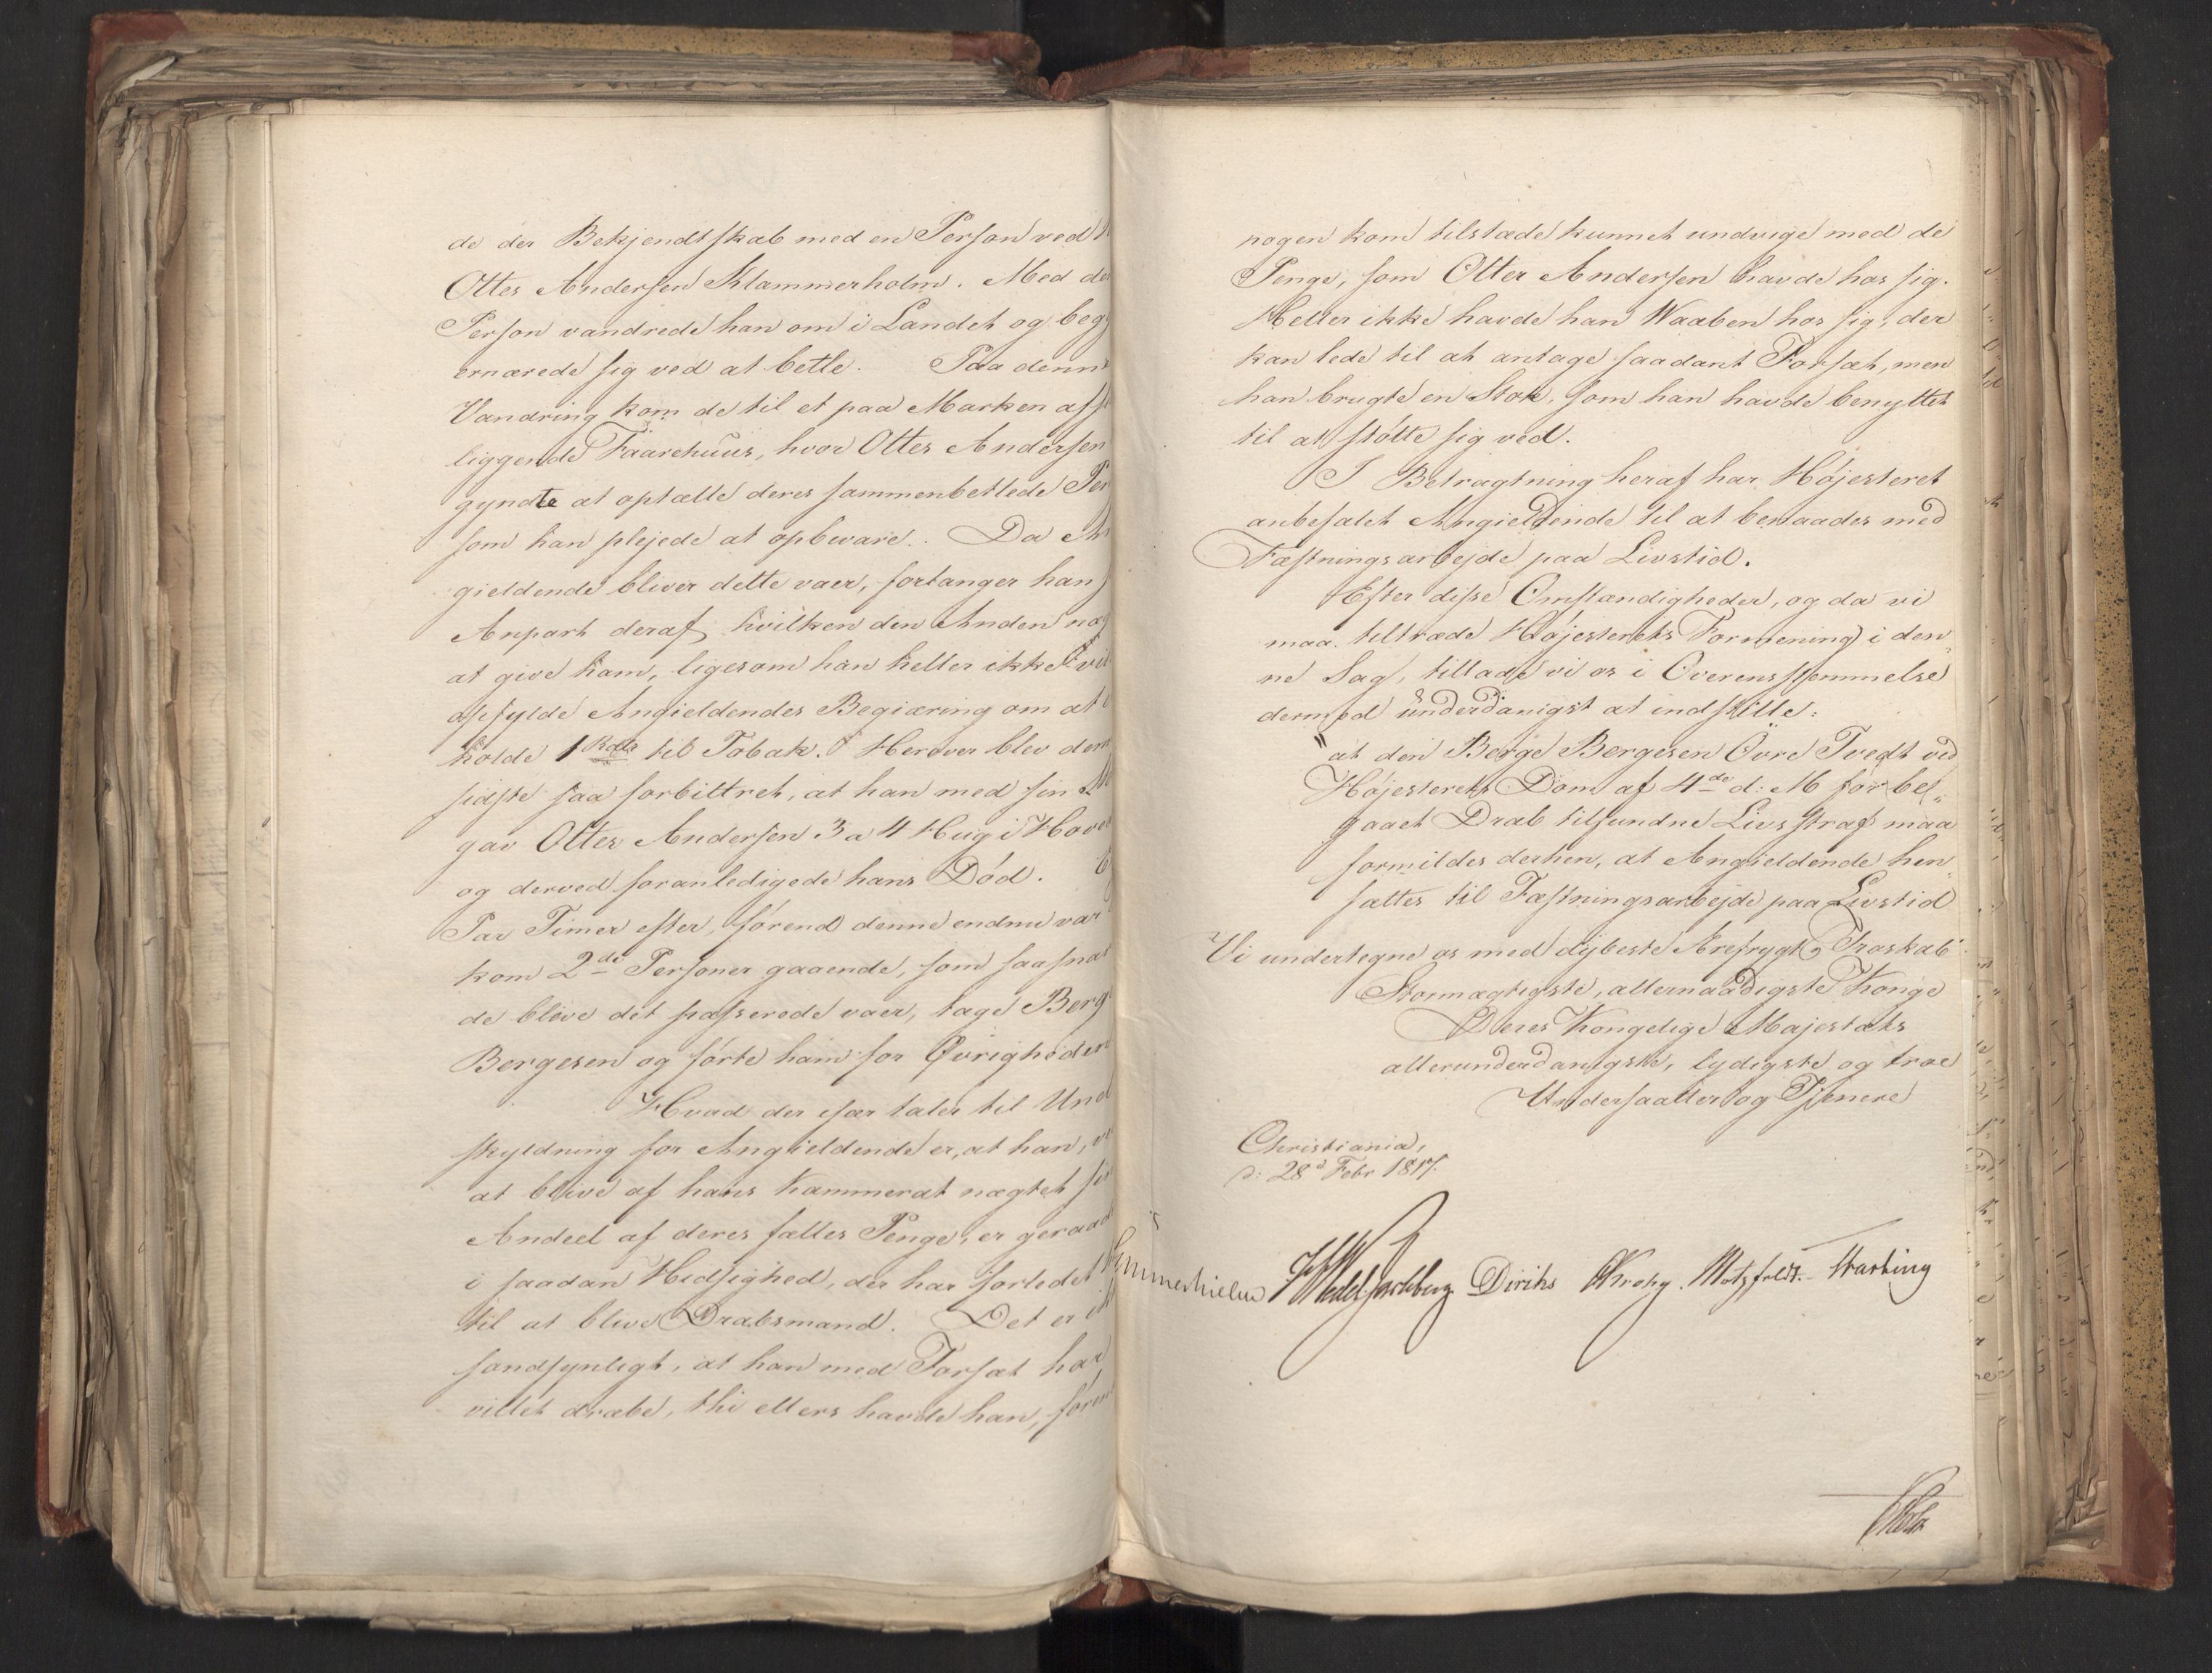 de der Bekjendtskab med en Person ved
Ottes Andersen Klammerholm. Med de
Person vandrede han om i Landet og beg
ernærede sig ved at betle. Paa denn
Vandring kom de til et paa Marken afs
liggende Faarehuus, hvor Ottes Andersen
gyndte at optælle deres sammenbetlede Pen
som han plejede at opbevare. Da An
gieldende bliver dette vaer, forlanger han
Anpart deraf, hvilken den Anden næg
at give ham, ligesom han heller ikke vil
opfylde Angieldendes Begiæring om at
holde 1 Rdlr til Tobak. Herover blev den
sidste saa forbittret, at han med sin
gav Ottes Andersen 3 a 4 Hug i Hove
og derved foranledigede hans Død. E
Par Timer efter, førend denne endnu var
kom 2de Personer gaaende, som saasnar
de bleve det passerede vaer, tage Berge
Bergesen og førte ham for Øvrigheden
Hvad der især taler til Und
skyldning for Angieldende er, at han, ve
at blive af hans Kammerat nægtet sin
Andeel af deres fælles Penge, er geraad
i saadan Hidsighed, der har forledet
til at blive Drabsmand. Det er ik
sandsynligt, at han med Forsæt har
villet dræbe, thi ellers havde han, føren
nogen kom tilstæde kunnet undvige med de
Penge, som Otter Andersen havde hos sig.
Heller ikke havde han Waaben hos sig, der
kan lede til at antage saadant Forsæt, men
han brugte en Stok, som han havde benyttet
til at støtte sig ved.
I Betragtning heraf har Højesteret
anbefalet Angieldende til at benaades med
Fæstningsarbejde paa Livstid.
Efter disse Omstændigheder, og da vi
maa tiltræde Højesterets Formening i den„
ne Sag, tillade vi os i Overensstemmelse
dermed underdanigst at indstille:
"at den Berge Bergesen Øvre Tvedt ved
Højesterets Dom af 4de d: M for be„
gaaet Drab tilfundne Livsstraf maa
formildes derhen, at Angieldende hen„
sættes til Fæstningsarbejde paa Livstid
Vi undertegne os med dybeste Ærefrygt, Troskab
Stormægtigste, allernaadigste Konge
Deres Kongelige Majestæts
allerunderdanigste, lydigste og troe
Undersaatter og Tjenere
Christiania,
d: 28d Febr 1817.
Sommerhielm HWedel Jarlsberg Diriks Krohg. Motzfeldt. Harbing